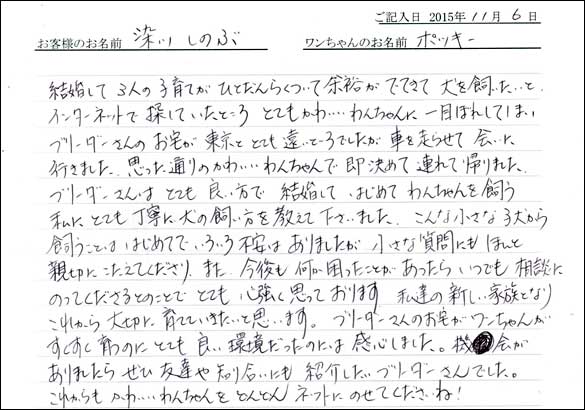 ご記入日 2015年 11月 6日
お客様のお名前 染川 しのぶ ワンちゃんのお名前 ポッキー
結婚して3人の子育てがひとだんらくついて余裕がでできて犬を飼いたいと
インターネットで探していたところとてもかわいいわんちゃんに一目ぼれしてしまい
ブリーダーさんのお宅が東京ととても遠いところでしたが車を走らせて会いに
行きました。思った通りのかわいいわんちゃんで即決めて連れて帰りました。
ブリーダーさんはとても良い方で結婚してはじめてわんちゃんを飼う
私にとても丁寧に犬の飼い方を教えて下さいました。こんな小さな子犬から
飼うことははじめてでいろいろ不安はありましたが小さな質問にもほんと
親切にこたえてくださり、また、今後も何か困ったことがあったらいつでも相談に
のってくださるとのことでとても心強く思っております。私達の新しい家族となり
これから大切に育てていきたいと思います。ブリーダーさんのお宅がワンちゃんが
すくすく育つのにとても良い環境だったのには感心しました。機会が
ありましたらぜひ友達や知り合いにも紹介したいブリーダーさんでした。
これからもかわいいわんちゃんをどんどんネットにのせてくださいね!